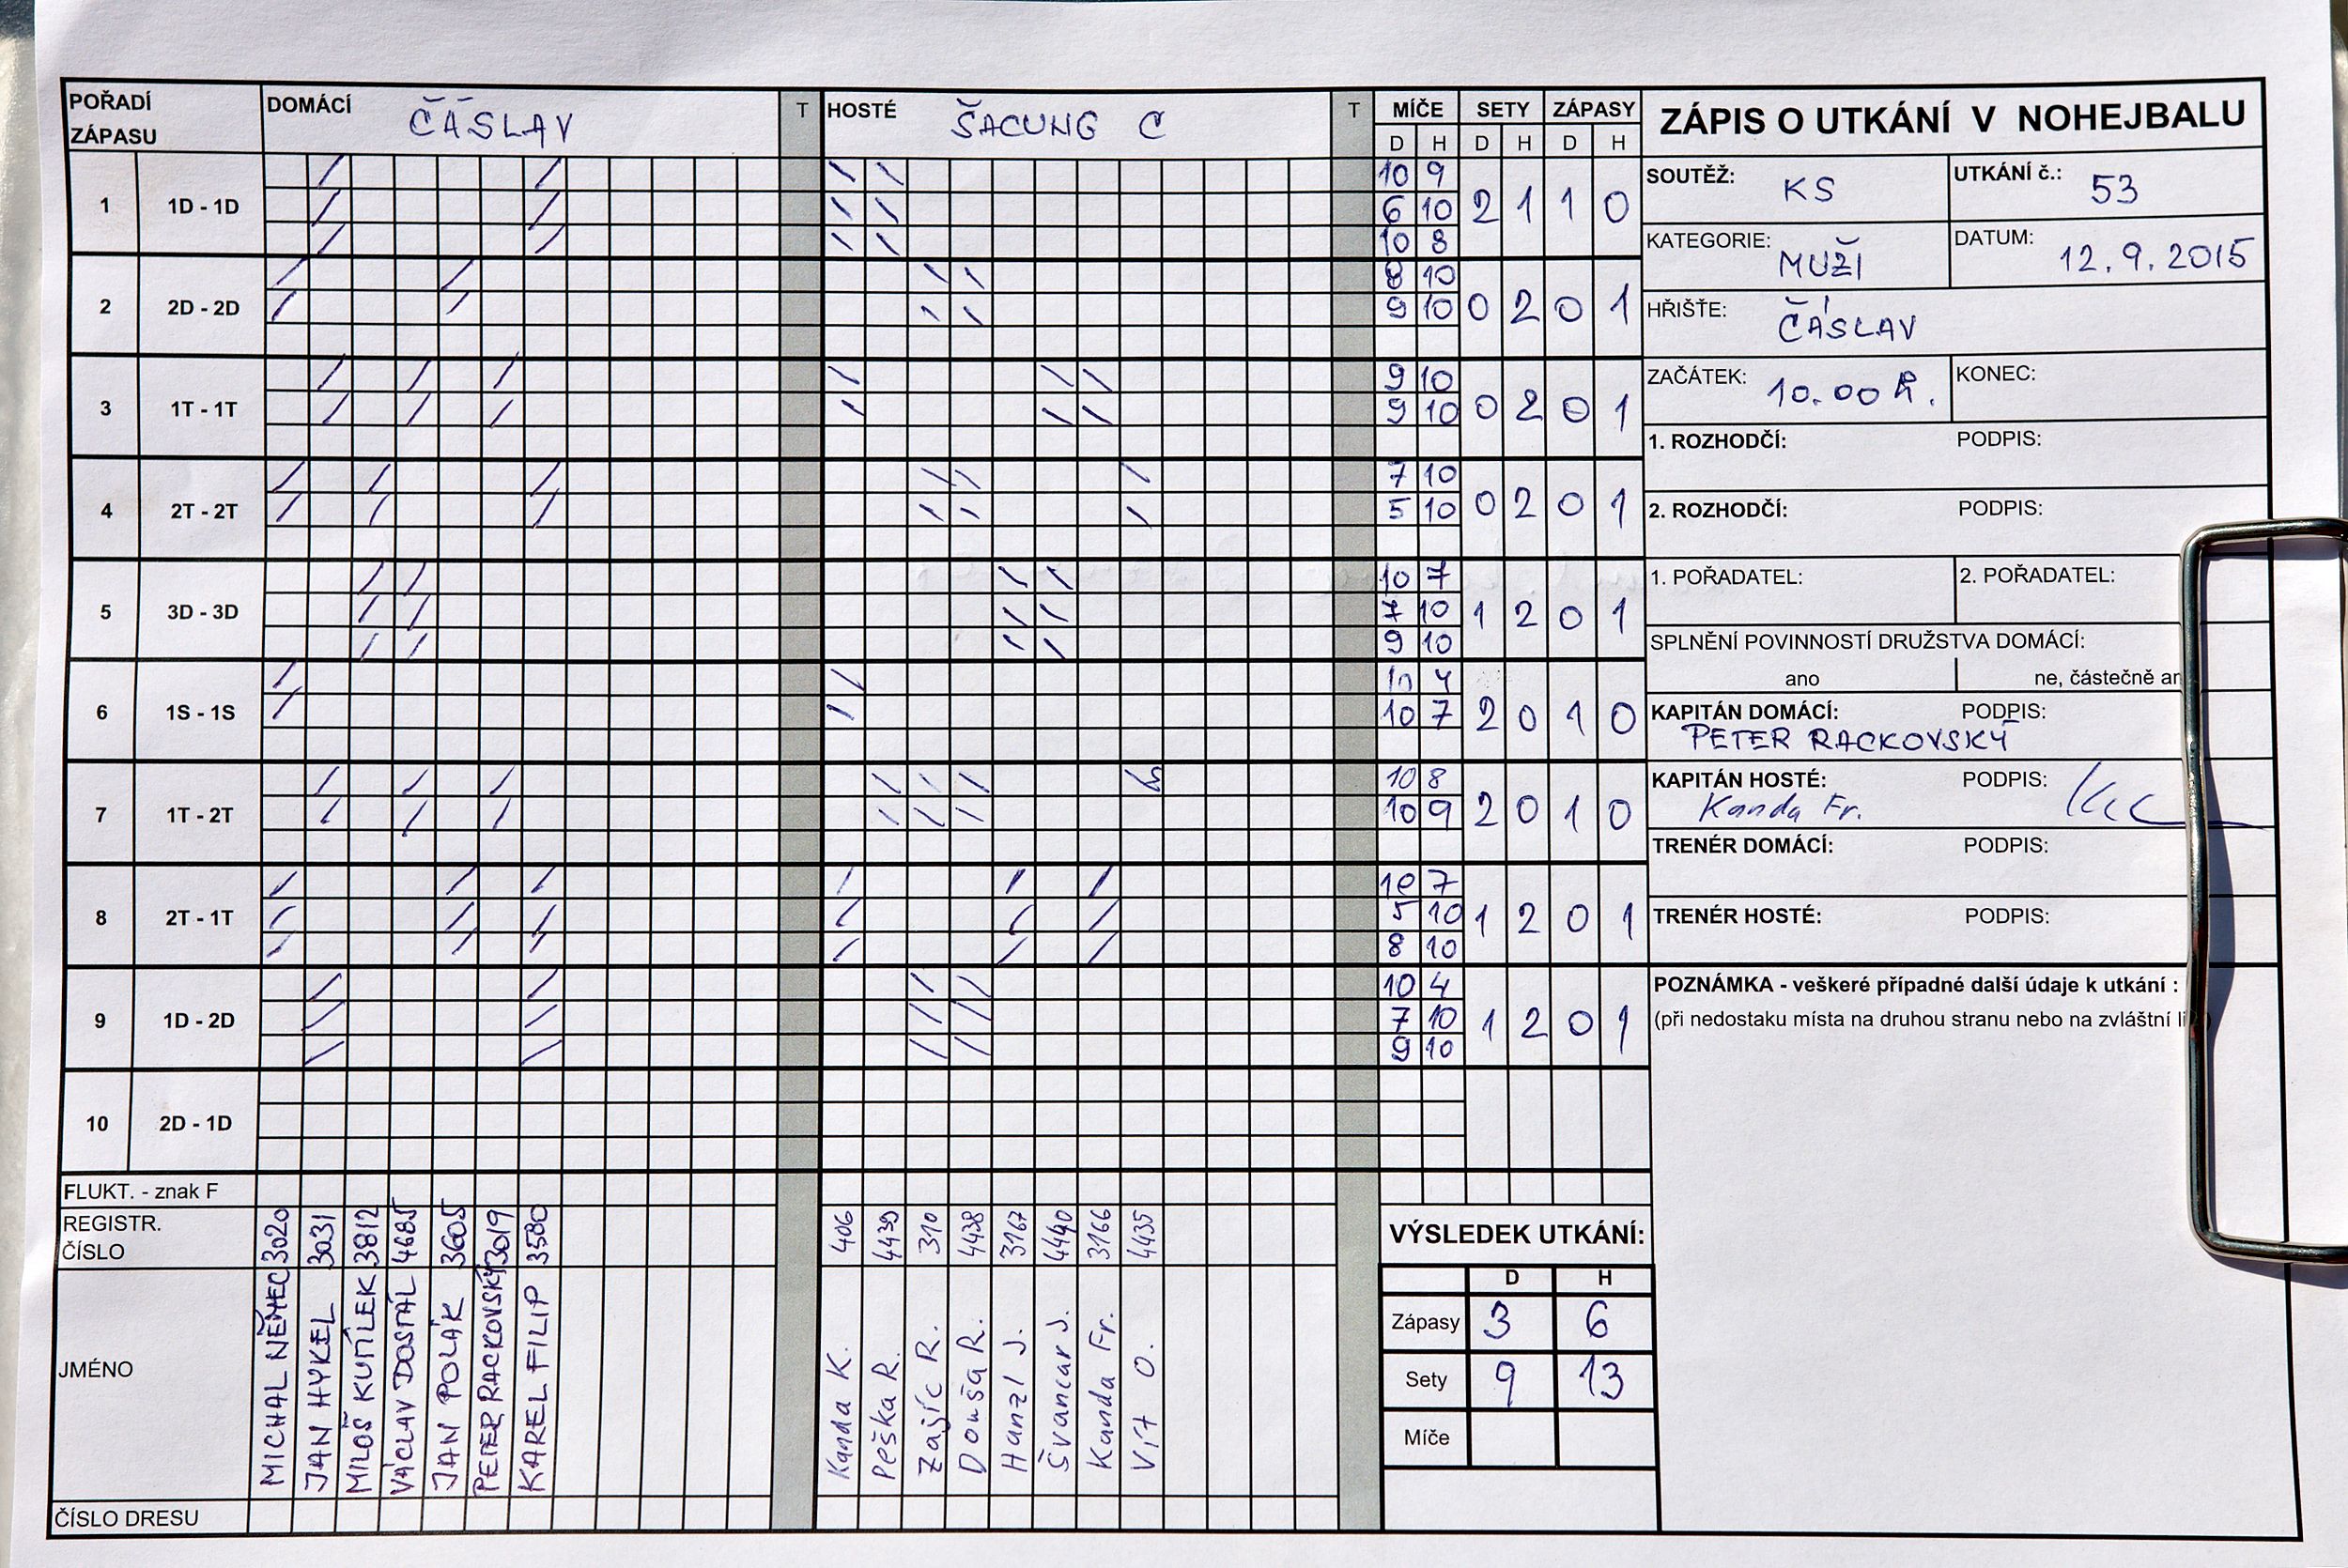 POŘADÍ ZÁPASU DOMÁCÍ ČÁSLAV T HOSTÉ ŠACUNG C T MÍČE SETY ZÁPASY
D H D H D H
1 1D - 1D 10 9 2 1 1 0
6 10
10 8
2 2D - 2D 8 10 0 2 0 1
9 10
3 1T - 1T 9 10 0 2 0 1
9 10
4 2T - 2T 7 10 0 2 0 1
5 10
5 3D - 3D 10 7 1 2 0 1
7 10
9 10
6 1S - 1S 10 4 2 0 1 0
10 7
7 1T - 2T 10 8 2 0 1 0
10 9
8 2T - 1T 10 7 1 2 0 1
5 10
8 10
9 1D - 2D 10 4 1 2 0 1
7 10
9 10
10 2D - 1D
FLUKT. - znak F
REGISTR. ČÍSLO 3020 3031 3812 4685 3605 3019 3580 406 4439 310 4438 3167 4440 3166 4435
JMÉNO MICHAL NĚMEC JAN HYKEL MILOŠ KUTÍLEK VÁCLAV DOSTÁL JAN POLÁK PETER RACKOVSKÝ KAREL FILIP Kanda K. Peška R. Zajíc R. Douša R. Hanzl J. Švancar J. Kanda Fr. Vít O.
ČÍSLO DRESU
ZÁPIS O UTKÁNÍ V NOHEJBALU
SOUTĚŽ: KS UTKÁNÍ č.: 53
KATEGORIE: MUŽI DATUM: 12.9.2015
HŘIŠTĚ: ČÁSLAV
ZAČÁTEK: 10.00 h. KONEC:
1. ROZHODČÍ: PODPIS:
2. ROZHODČÍ: PODPIS:
1. POŘADATEL: 2. POŘADATEL:
SPLNĚNÍ POVINNOSTÍ DRUŽSTVA DOMÁCÍ:
ano ne, částečně
KAPITÁN DOMÁCÍ: PODPIS:
PETER RACKOVSKÝ
KAPITÁN HOSTÉ: PODPIS:
Kanda Fr.
TRENÉR DOMÁCÍ: PODPIS:
TRENÉR HOSTÉ: PODPIS:
POZNÁMKA - veškeré případné další údaje k utkání :
(při nedostaku místa na druhou stranu nebo na zvláštní
VÝSLEDEK UTKÁNÍ:
D H
Zápasy 3 6
Sety 9 13
Míče